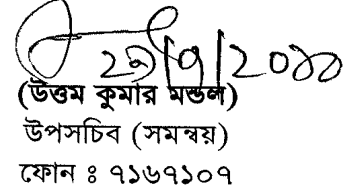 (উত্তম কুমার মন্ডল)
উপসচিব (সমন্বয়)
ফোন ঃ ৭১৬৭১০৭